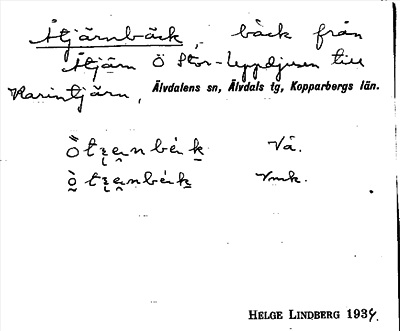 Åtjärnbäck, bäck från
Åtjärn Ö Stor-Leppdjusen till
Karintjärn, Älvdalens sn, Älvdals tg, Kopparbergs län.
Vå.
Vmk.
HELGE LINDBERG 1934.